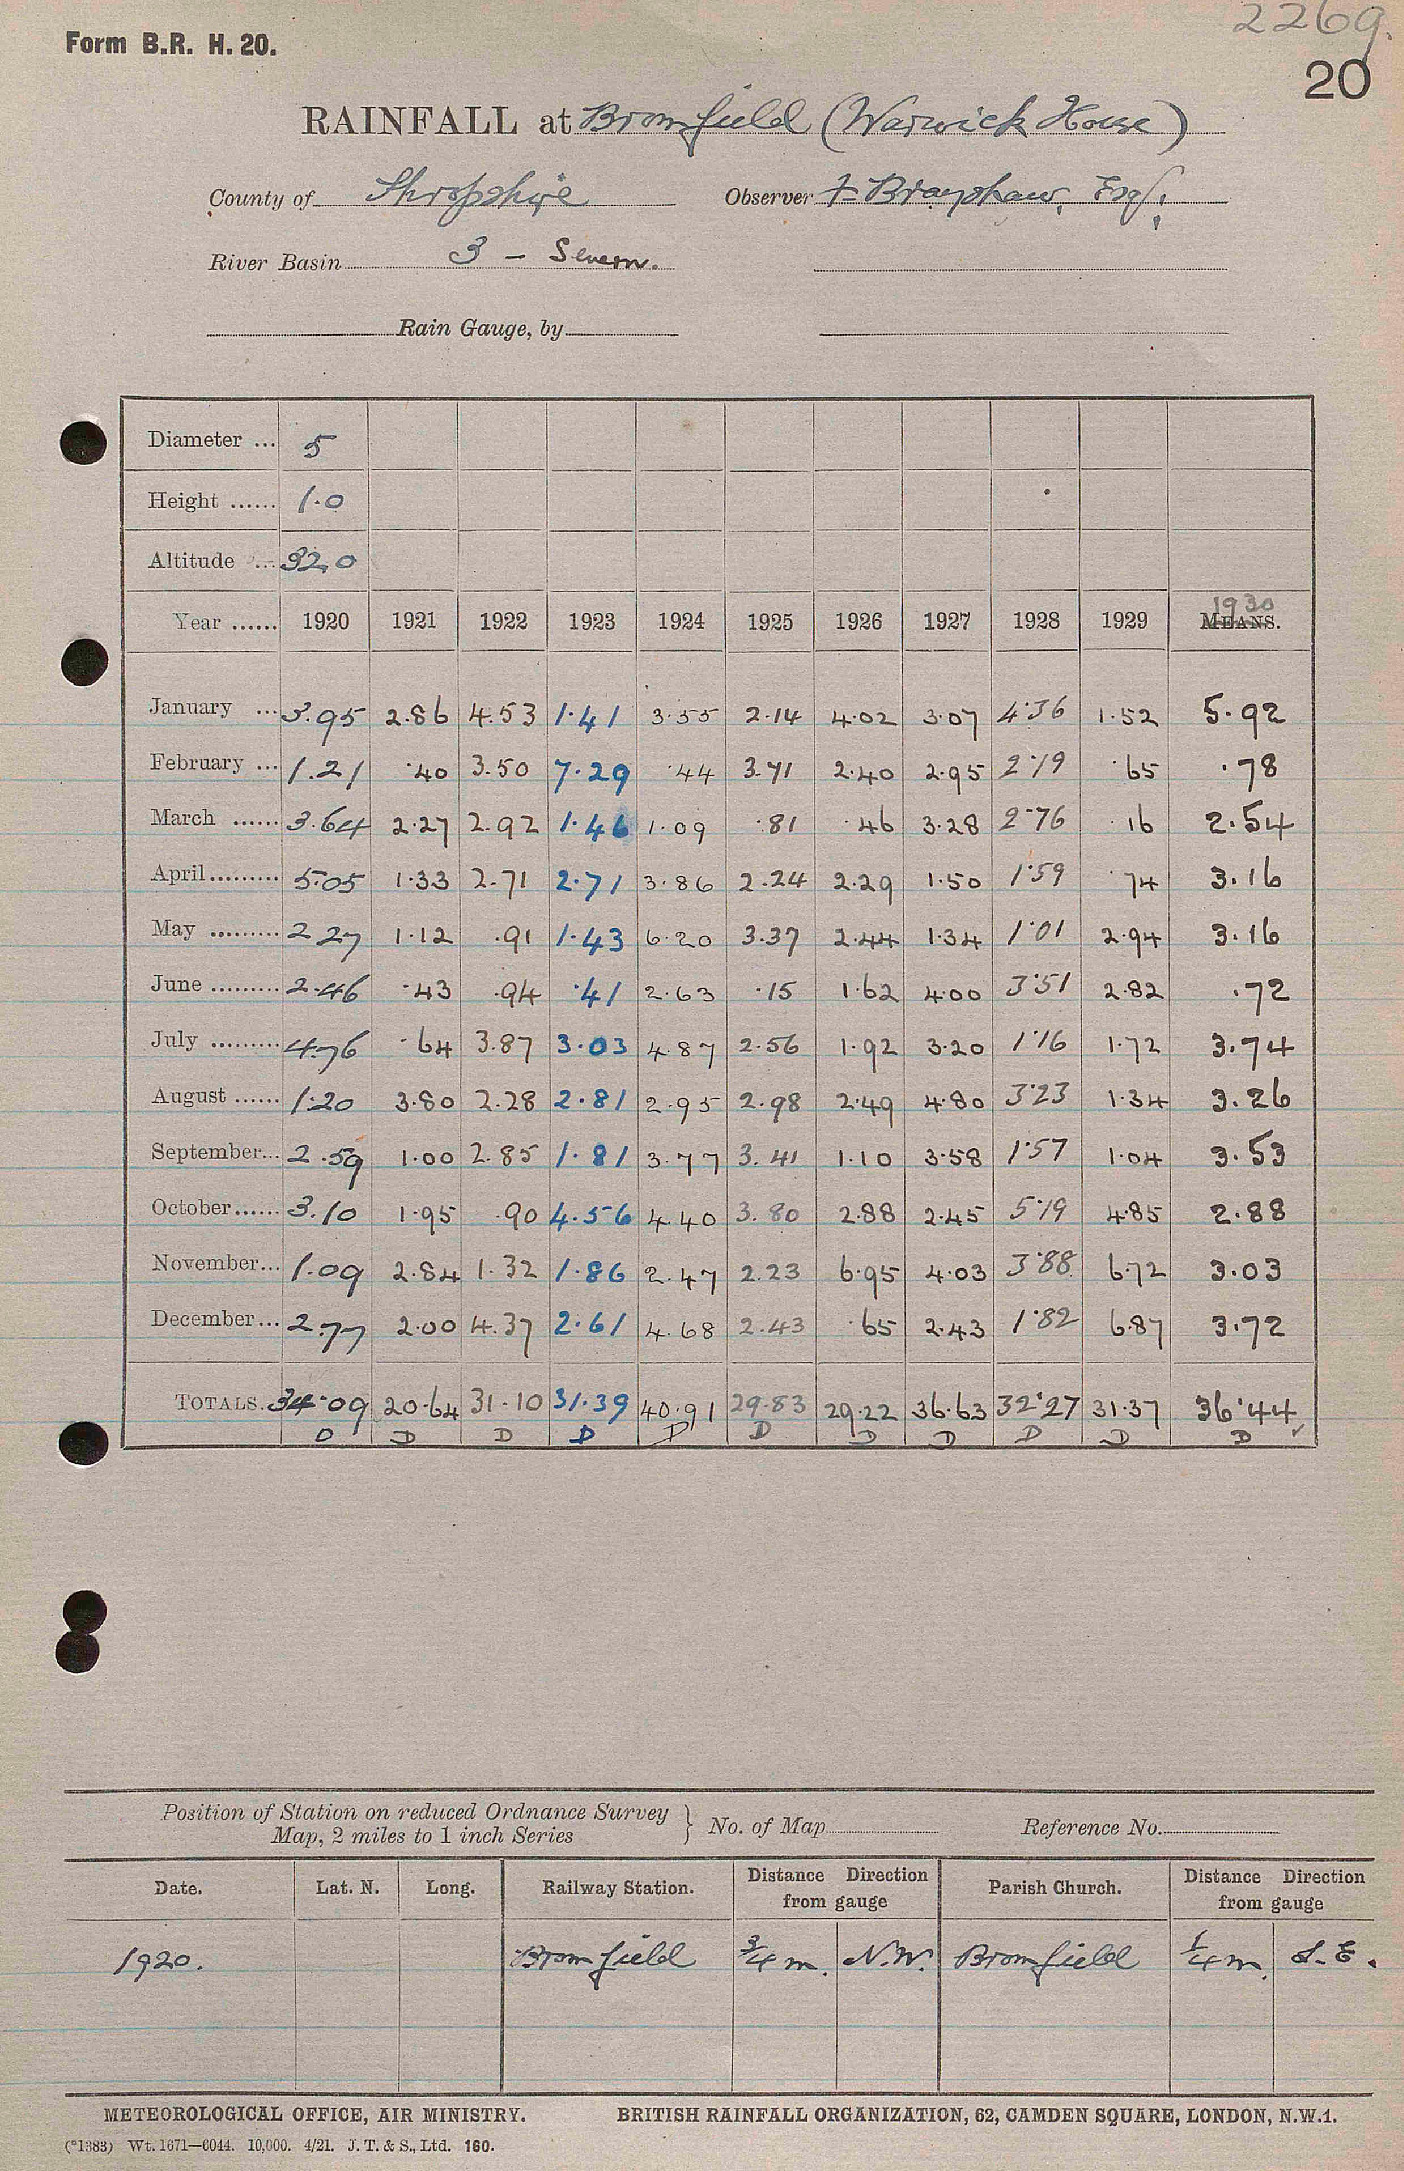 2269.
Form B.R. H. 20.
20
RAINFALL at Bromfield (Warwick House)
County of Shropshire Observer F Brayshaw, Esq.
River Basin 3 - Severn.
Rain Gauge, by
Diameter ... 5
Height ...... 1.0
Altitude ... 320
Year ...... 1920 1921 1922 1923 1924 1925 1926 1927 1928 1929 MEANS. 1930
January ... 3.95 2.86 4.53 1.41 3.55 2.14 4.02 3.07 4.36 1.52 5.92
February ... 1.21 .40 3.50 7.29 .44 3.71 2.40 2.95 2.19 .65 .78
March ...... 3.64 2.27 2.92 1.46 1.09 .81 .46 3.28 2.76 .16 2.54
April ......... 5.05 1.33 2.71 2.71 3.86 2.24 2.29 1.50 1.59 .74 3.16
May ......... 2.27 1.12 .91 1.43 6.20 3.37 2.44 1.34 1.01 2.94 3.16
June ......... 2.46 .43 .94 .41 2.63 .15 1.62 4.00 3.51 2.82 .72
July ......... 4.76 .64 3.87 3.03 4.87 2.56 1.92 3.20 1.16 1.72 3.74
August ...... 1.20 3.80 2.28 2.81 2.95 2.98 2.49 4.80 3.23 1.34 3.26
September... 2.59 1.00 2.85 1.81 3.77 3.41 1.10 3.58 1.57 1.04 3.53
October...... 3.10 1.95 .90 4.56 4.40 3.80 2.88 2.45 5.19 4.85 2.88
November... 1.09 2.84 1.32 1.86 2.47 2.23 6.95 4.03 3.88 6.72 3.03
December... 2.77 2.00 4.37 2.61 4.68 2.43 .65 2.43 1.82 6.87 3.72
TOTALS. 34.09 20.64 31.10 31.39 40.91 29.83 29.22 36.63 32.27 31.37 36.44
D D D D D D D D D D D ✓
Position of Station on reduced Ordnance Survey
Map, 2 miles to 1 inch Series } No. of Map Reference No.
Date. Lat. N. Long. Railway Station. Distance Direction from gauge Parish Church. Distance Direction from gauge
1920. Bromfield 3/4 m. N.W. Bromfield 1/4 m. S.E.
METEOROLOGICAL OFFICE, AIR MINISTRY. BRITISH RAINFALL ORGANIZATION, 62, CAMDEN SQUARE, LONDON, N.W.1.
(*1383) Wt. 1671—6044. 10,000. 4/21. J. T. & S., Ltd. 160.